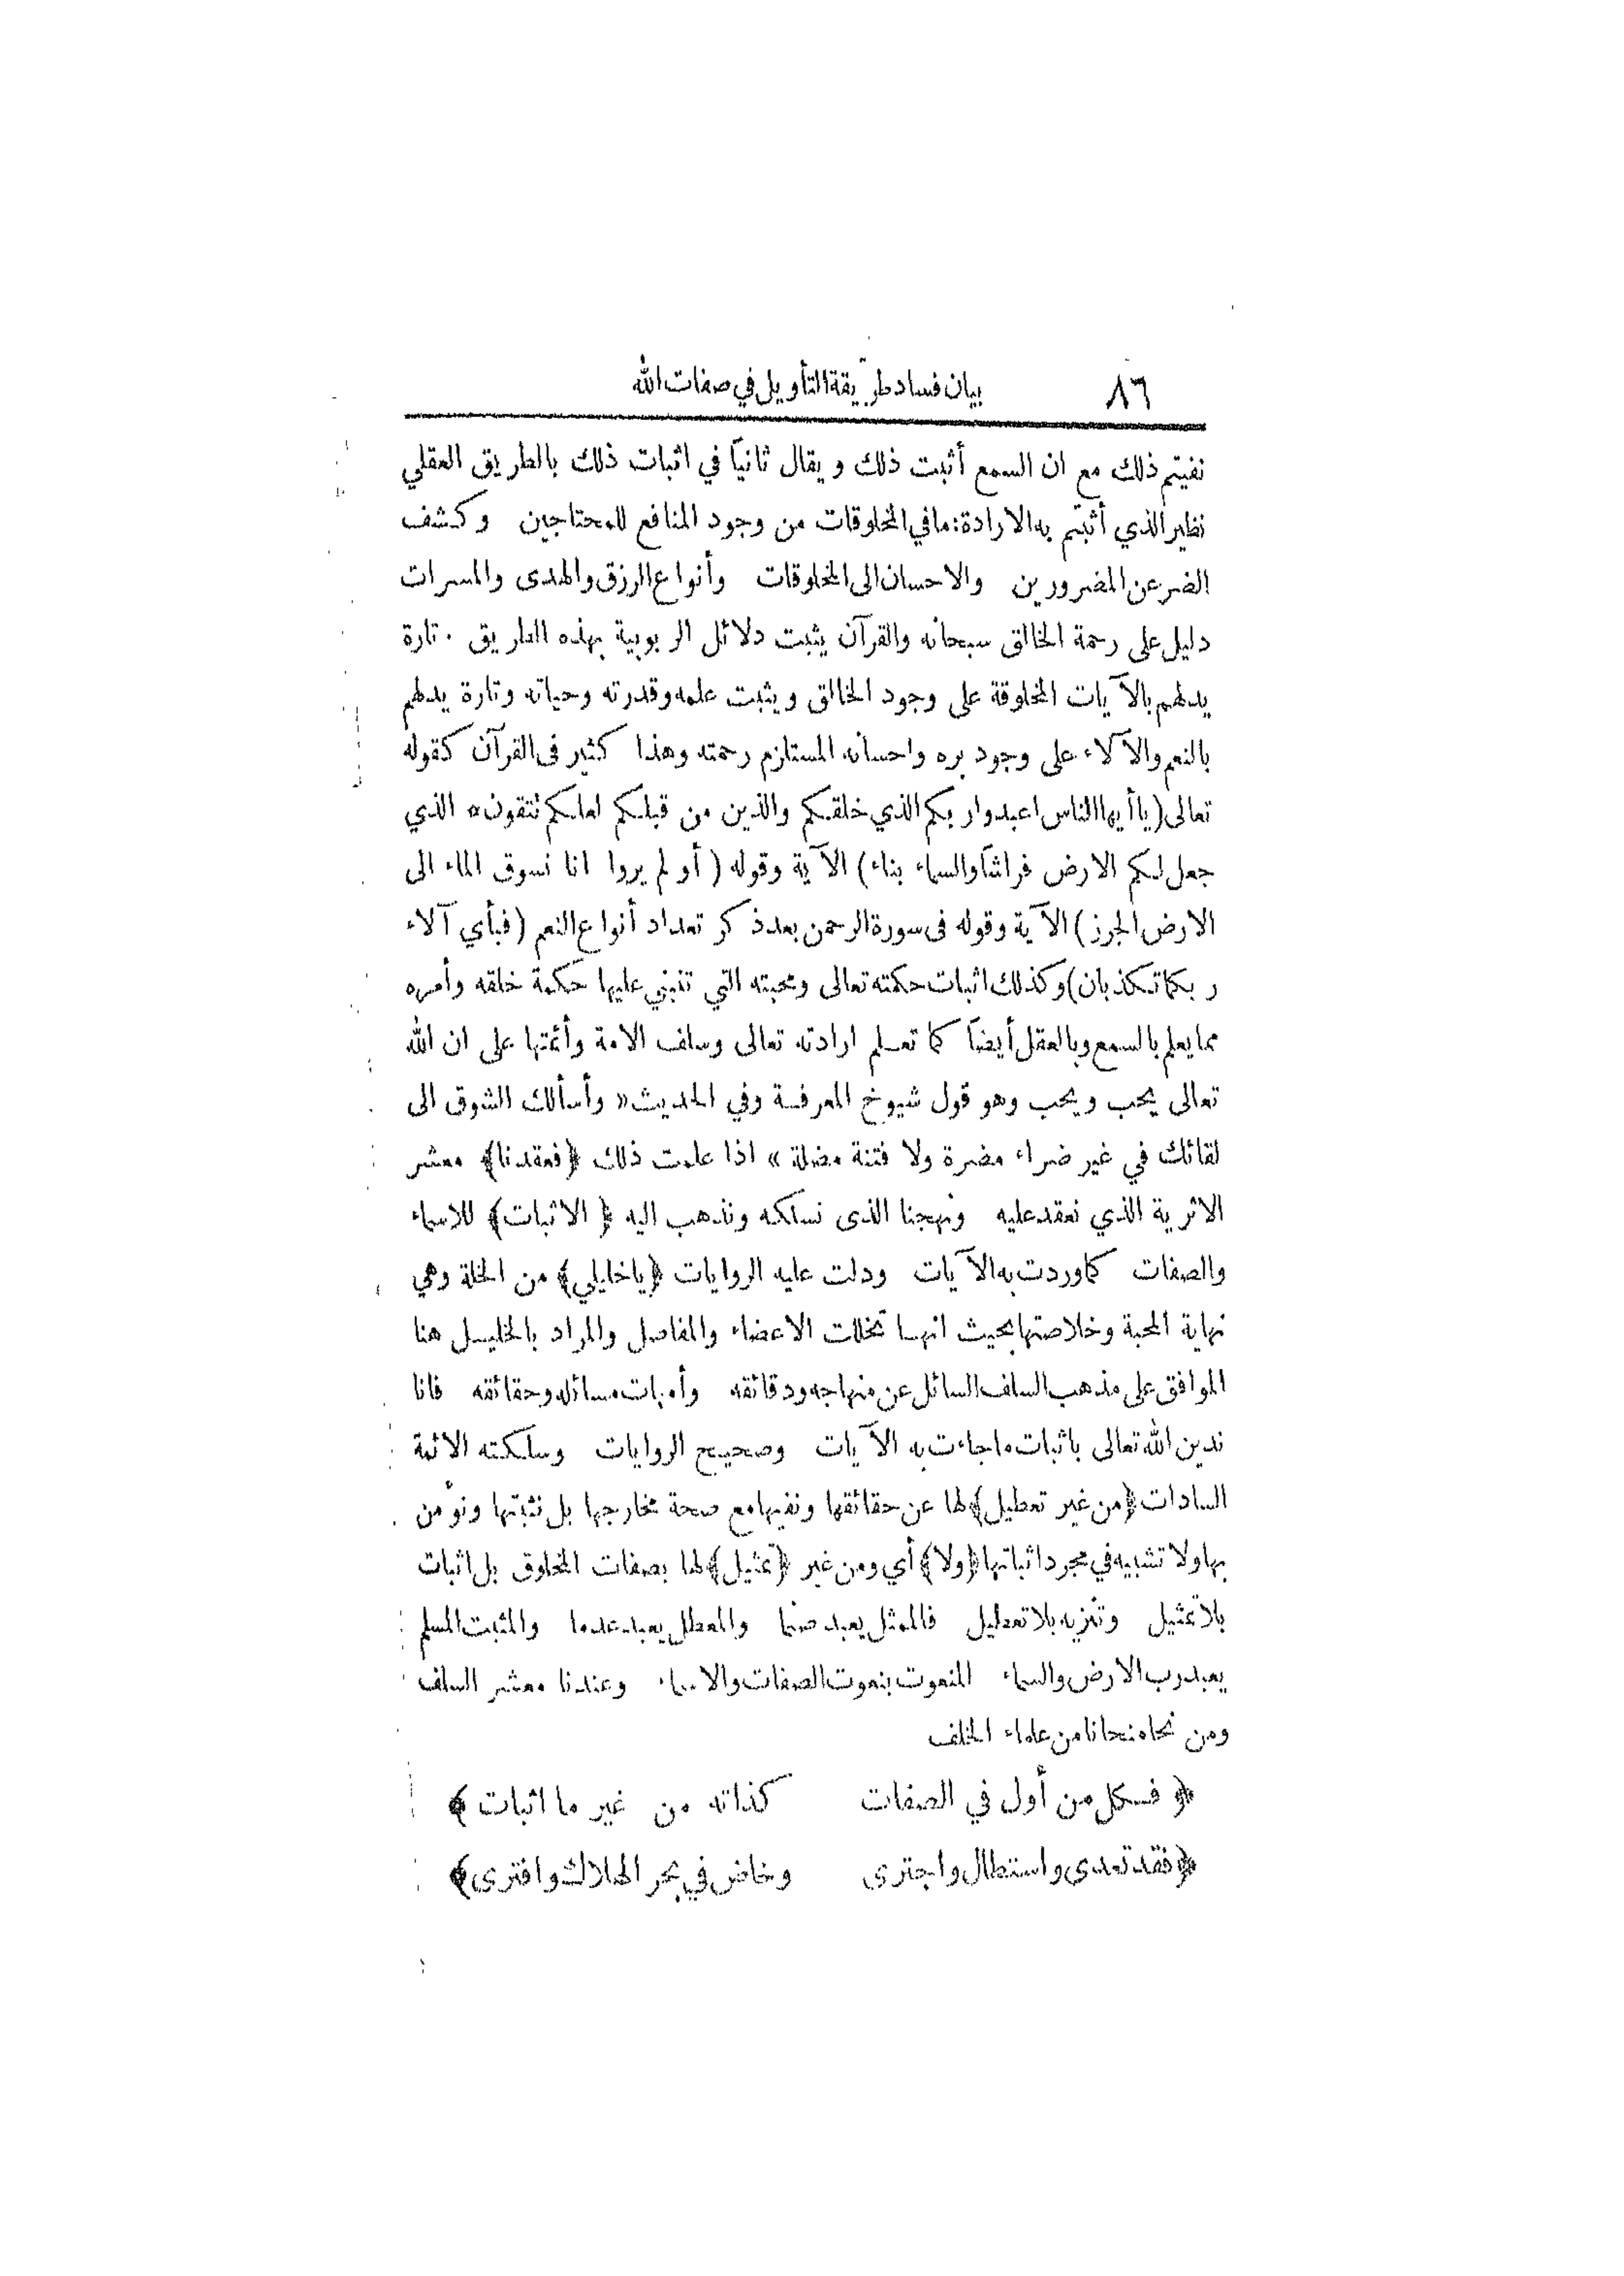 ٨٦ بيان فساد طريقة التأويل في صفات الله
نفيتم ذلك مع ان السمع أثبت ذلك ويقال ثانياً في اثبات ذلك بالطريق العقلي
نظير الذي أثبتم به الارادة: مافي المخلوقات من وجود المنافع للمحتاجين وكشف
الضر عن المضرورين والاحسان الى المخلوقات وأنواع الرزق والهدى والمسرات
دليل على رحمة الخالق سبحانه والقرآن يثبت دلائل الربوبية بهذه الطريق . تارة
يدلهم بالآيات المخلوقة على وجود الخالق ويثبت علمه وقدرته وحياته وتارة يدلهم
بالنعم والآلاء على وجود بره واحسانه المستلزم رحمته وهذا كثير فى القرآن كقوله
تعالى (ياأيها الناس اعبدوا ربكم الذي خلقكم والذين من قبلكم لعلكم تتقون * الذي
جعل لكم الارض فراشاً والسماء بناء) الآية وقوله (أو لم يروا انا نسوق الماء الى
الارض الجرز) الآية وقوله فى سورة الرحمن بعد ذكر تعداد أنواع النعم (فبأي آلاء
ربكما تكذبان) وكذلك اثبات حكمته تعالى ومحبته التي تنبني عليها حكمة خلقه وأمره
مما يعلم بالسمع وبالعقل أيضاً كما تعلم ارادته تعالى وسلف الامة وأئمتها على ان الله
تعالى يحب ويحب وهو قول شيوخ المعرفة وفي الحديث «وأسألك الشوق الى
لقائك في غير ضراء مضرة ولا فتنة مضلة» اذا علمت ذلك ﴿فعقدنا﴾ معشر
الاثرية الذي نعقد عليه ونهجنا الذى نسلكه ونذهب اليه ﴿الاثبات﴾ للاسماء
والصفات كما وردت به الآيات ودلت عليه الروايات ﴿ياخليلي﴾ من الخلة وهي
نهاية المحبة وخلاصتها بحيث انها تخللت الاعضاء والمفاصل والمراد بالخليل هنا
الموافق على مذهب السلف السائل عن منهاجه ودقائقه وأمهات مسائله وحقائقه فانا
ندين الله تعالى باثبات ماجاءت به الآيات وصحيح الروايات وسلكته الائمة
السادات ﴿من غير تعطيل﴾ لها عن حقائقها ونفيها مع صحة مخارجها بل نثبتها ونؤمن
بها ولا تشبيه في مجرد اثباتها ﴿ولا﴾ أي ومن غير ﴿تمثيل﴾ لها بصفات المخلوق بل اثبات
بلا تمثيل وتنزيه بلا تعطيل فالممثل يعبد صنما والمعطل يعبد عدما والمثبت المسلم
يعبد رب الارض والسماء المنعوت بنعوت الصفات والاسماء وعندنا معشر السلف
ومن نحا منحانا من علماء الخلف
﴿فكل من أول في الصفات كذاته من غير ما اثبات﴾
﴿فقد تعدى واستطال واجترى وخاض في بحر الهلاك وافترى﴾